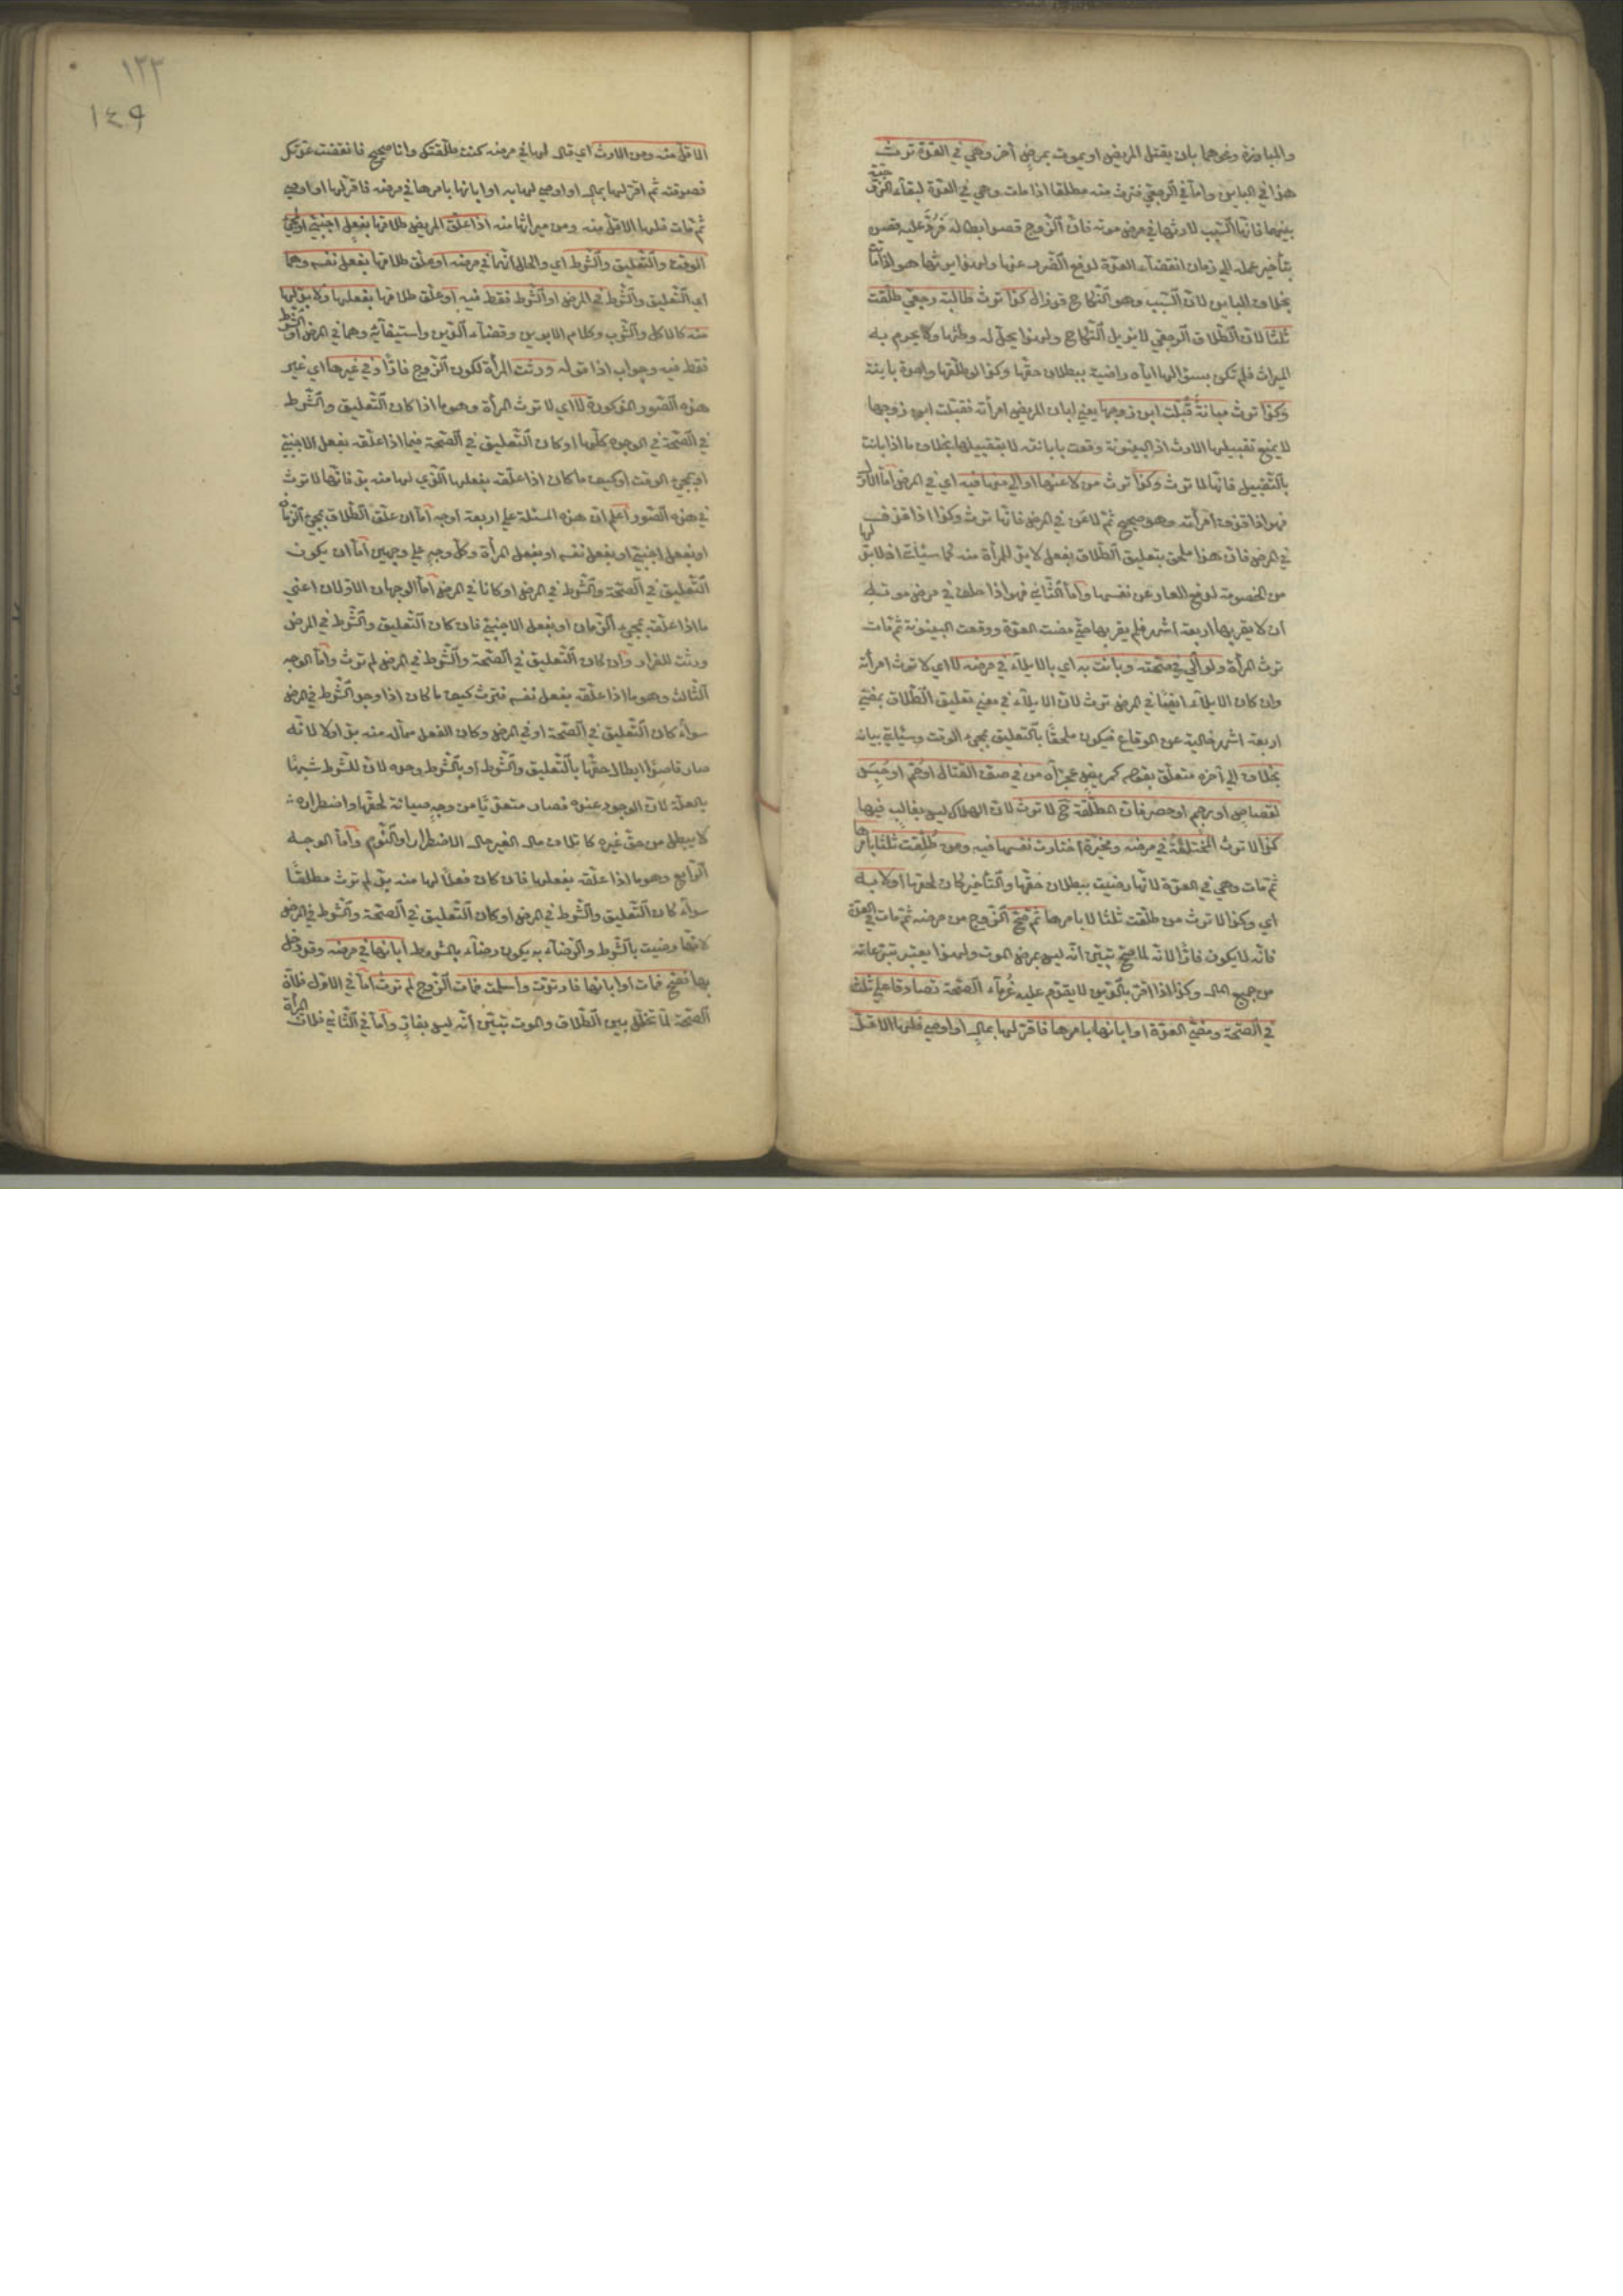 والمبارزة ونحوهما بان يقتل المريض او يموت بمرض آخر وهي في العدة ترث
هذا في الباين واما في الرجعي فترث منه مطلقا اذا مات وهي في العدة لبقاء الزوجية
بينهما فانها السبب لارثها في مرض موته فان الزوج قصد ابطاله فرد عليه قصده
بتأخير عمله الي زمان انقضاء العدة لدفع الضرر عنها ولهذا يرثها هو اذا ماتت
بخلاف الباين لان السبب وهو النكاح قد زال كذا ترث طالبة رجعي طلقت
ثلثا لان الطلاق الرجعي لا يزيل النكاح ولهذا يحل له وطئها ولا يحرم به
الميراث فلم تكن بسؤالها اياه راضية ببطلان حقها وكذا لو طلقها واحدة باينة
وكذا ترث مبانة قبلت ابن زوجها يعني ابان المريض امرأته فقبلت ابن زوجها
لا يمنع تقبيلها الارث اذ البينونة وقعت بابانته لا بتقبيلها بخلاف ما اذا بانت
بالتقبيل فانها لا ترث وكذا ترث من لاعنها او الي منها فيه اي في المرض اما الاول
فهو اذا قذف امرأته وهو صحيح ثم لاعن في المرض فانها ترث وكذا اذا قذف
في المرض فان هذا ملحق بتعليق الطلاق بفعل لا بد للمرأة منه كما سيأتي اذ لا بد لها
من الخصومة لدفع العار عن نفسها واما الثاني فهو اذا حلف في مرض موته
ان لا يقربها اربعة اشهر فلم يقربها حتي مضت العدة ووقعت البينونة ثم مات
ترث المرأة ولو الي في صحته وبانت به اي بالايلاء في مرضه لا اي لا ترث امرأته
وان كان الايلاء ايضا في المرض ترث لان الايلاء في معني تعليق الطلاق بمضي
اربعة اشهر خالية عن الوقاع فيكون ملحقا بالتعليق بمجيء الوقت وسيأتي بيانه
بخلاف الي آخره متعلق بقوله كمريض عجز آه من في صف القتال او حم او حبس
لقصاص او رجم او حصر فان المطلقة ح لا ترث لان الهلاك ليس بغالب فيها
كذا لا ترث المختلعة في مرضه ومخيرة اختارت نفسها فيه ومن طلقت ثلثا بامرها
ثم مات وهي في العدة لانها رضيت ببطلان حقها والتأخير كان لحقها او لا به
اي وكذا لا ترث من طلقت ثلثا لا بامرها ثم صح الزوج من مرضه ثم مات في العدة
فانه لا يكون فارا لانه لما صح تبين انه ليس بمرض الموت ولهذا يعتبر تبرعاته
من جميع المال وكذا اذا اقر بالدين لا يقدم عليه غرماء الصحة تصادقا علي ثلث
في الصحة ومضي العدة او ابانها بامرها فاقر لها بمال او اوصي فلها الاقل
١٢٣
١٤٩
الاقل منه ومن الارث اي قال لها في مرضه كنت طلقتك وانا صحيح فانقضت عدتك
فصدقته ثم اقر لها بمال او اوصي لها به او ابانها بامرها في مرضه فاقر لها او اوصي
ثم مات فلها الاقل منه ومن ميراثها منه اذا علق المريض طلاقها بفعل اجنبي او مجيء
الوقت والتعليق والشرط اي والحال انهما في مرضه او علق طلاقها بفعل نفسه وهما
اي التعليق والشرط في المرض او الشرط فقط فيه او علق طلاقها بفعلها ولا بد لها
منه كالاكل والشرب وكلام الابوين وقضاء الدين واستيفائه وهما في المرض او الشرط
فقط فيه وجواب اذا قوله ورثت المرأة لكون الزوج فارا وفي غيرها اي غير
هذه الصور المذكورة لا اي لا ترث المرأة وهو ما اذا كان التعليق والشرط
في الصحة في الوجوه كلها او كان التعليق في الصحة فيما اذا علقه بفعل الاجنبي
او بمجيء الوقت او كيف ما كان اذا علقه بفعلها الذي لها منه بد فانها لا ترث
في هذه الصور اعلم ان هذه المسئلة علي اربعة اوجه اما ان علق الطلاق بمجيء الزمان
او بفعل اجنبي او بفعل نفسه او بفعل المرأة وكل وجه علي وجهين اما ان يكون
التعليق في الصحة والشرط في المرض او كانا في المرض اما الوجهان الاولان اعني
ما اذا علقه بمجيء الزمان او بفعل الاجنبي فان كان التعليق والشرط في المرض
ورثت للفرار وان كان التعليق في الصحة والشرط في المرض لم ترث واما الوجه
الثالث وهو ما اذا علقه بفعل نفسه فترث كيف ما كان اذا وجد الشرط في المرض
سواء كان التعليق في الصحة او في المرض وكان الفعل مما له منه بد او لا لانه
صار قاصدا ابطال حقها بالتعليق والشرط او بالشرط وحده لان للشرط شبها
بالعلة لان الوجود عنده فصار متعديا من وجه صيانة لحقها واضطراره
لا يبطل من حق غيره كاتلاف مال الغير حال الاضطرار او النوم واما الوجه
الرابع وهو ما اذا علقه بفعلها فان كان فعلا لها منه بد لم ترث مطلقا
سواء كان التعليق والشرط في المرض او كان التعليق في الصحة والشرط في المرض
لانها رضيت بالشرط والرضاء به يكون رضاء بالمشروط ابانها في مرضه وقد دخل
بها فصح فمات او ابانها فارتدت واسلمت فمات الزوج لم ترث اما في الاول فلان
الصحة لما تخلل بين الطلاق والموت تبين انه ليس بفار واما في الثاني فلان المرأة